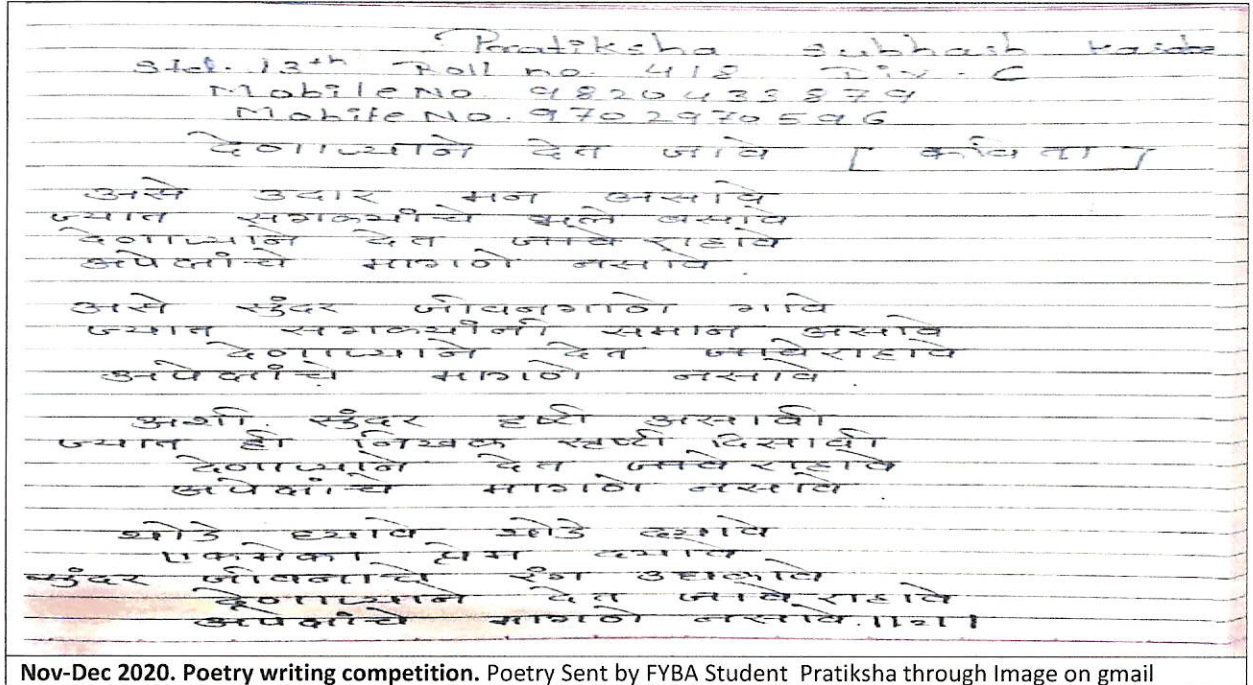 Pratiksha Subhash
Std. 13th Roll no. 418 Div. C
Mobile No. 9820433879
Mobile No. 9702970596
देणाऱ्याने देत जावे [ कविता ]
असे उदार मन असावे
ज्यात सगळ्यांचे भले वसावे
देणाऱ्याने देत जावे राहावे
अपेक्षांचे मागणे नसावे.
असे सुंदर जीवनगाणे गावे
ज्यात सगळ्यांनी समान असावे
देणाऱ्याने देत जावे राहावे
अपेक्षांचे मागणे नसावे.
अशी सुंदर दृष्टी असावी
ज्यात ही निखळ सृष्टी दिसावी
देणाऱ्याने देत जावे राहावे
अपेक्षांचे मागणे नसावे.
थोडे घ्यावे थोडे द्यावे
एकमेका प्रेम द्यावे
सुंदर जीवनाचे रंग उधळावे
देणाऱ्याने देत जावे राहावे
अपेक्षांचे मागणे नसावे.
Nov-Dec 2020. Poetry writing competition. Poetry Sent by FYBA Student Pratiksha through Image on gmail